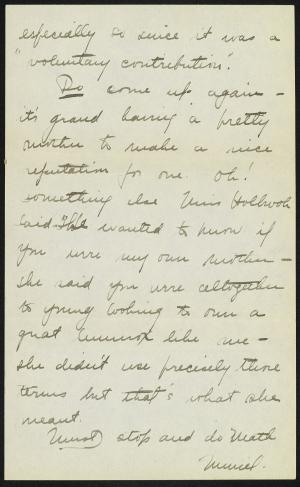 especially so since it was a
"voluntary contribution".
Do come up again -
it's grand having a pretty
mother to make a nice
reputation for one. Oh!
something else Miss Holbrook
said - She wanted to know if
you were my own mother -
she said you were altogether
to young looking to own a
great lummox like me -
she didn't use precisely those
terms but that's what she
meant.
Must stop and do Math
Muriel.